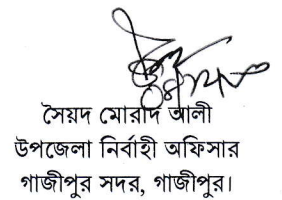 সৈয়দ মোরাদ আলী
উপজেলা নির্বাহী অফিসার
গাজীপুর সদর, গাজীপুর।